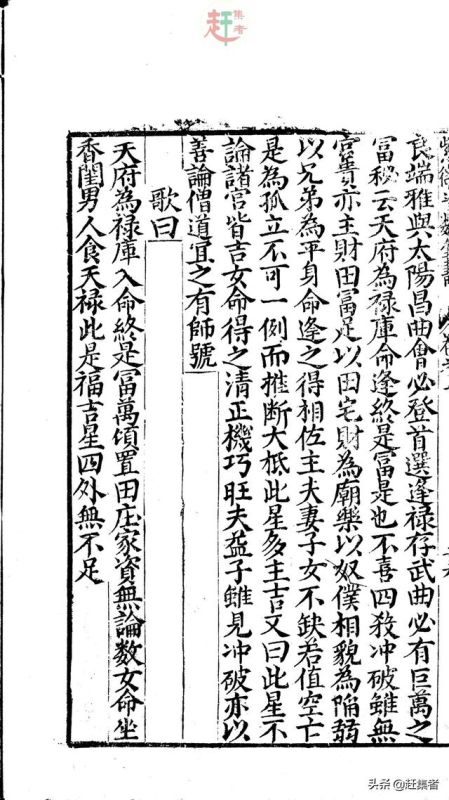 集者
赶
良端雅與太陽昌曲會必登首選逢禄存武曲必有巨萬之
富秘云天府為禄庫命逢終是富是也不喜四殺冲破雖無
官貴亦主財田富足以田宅財為廟樂以奴僕相貌為陥弱
以兄弟為平身命逢之得相佐主夫妻子女不缺若值空亡
是為孤立不可一例而推断大柢此星多主吉又曰此星不
論諸宫皆吉女命得之清正機巧旺夫益子雖見冲破亦以
善論僧道宜之有師號
歌曰
天府為禄庫入命終是富萬頃置田庄家資無論数女命坐
香閨男人食天禄此是福吉星四外無不足
头条@赶集者